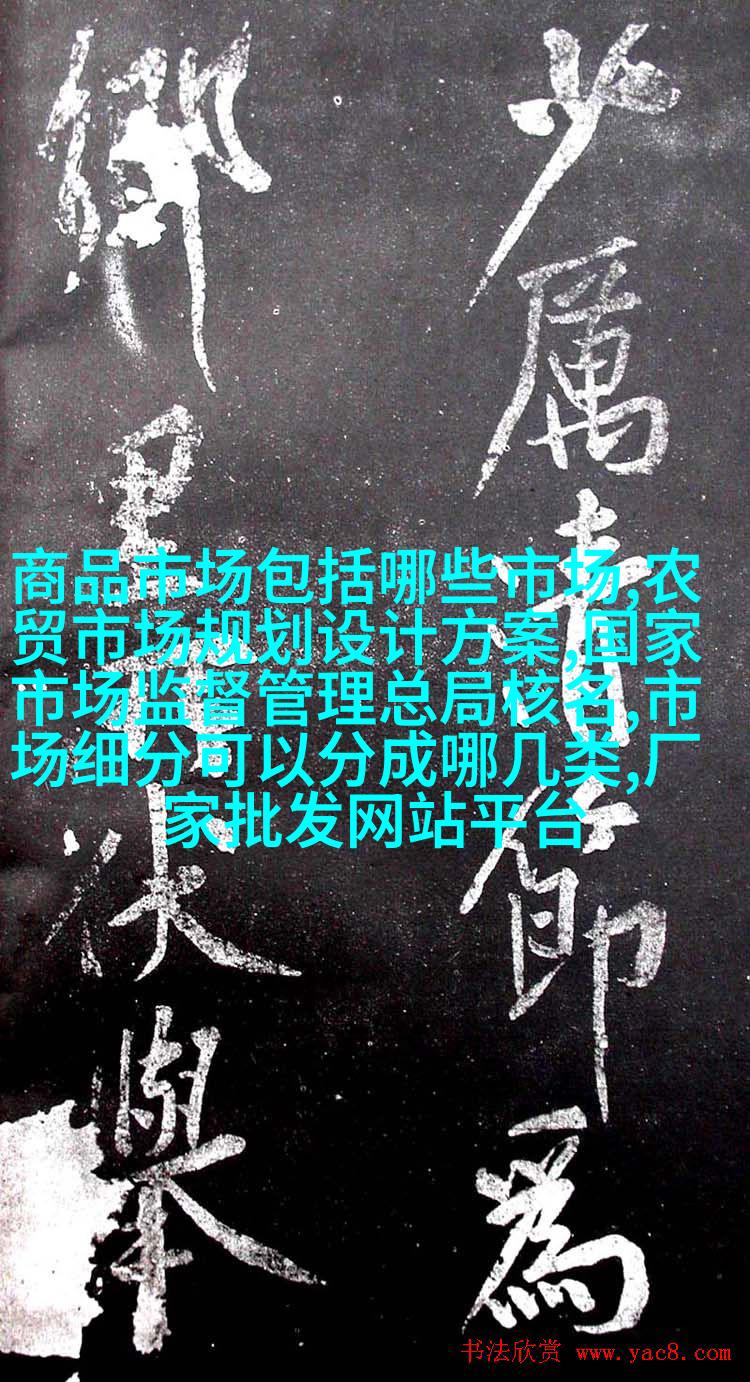 少厲清節為
鄉里所伏舉
商品市场包括哪些市场,农
贸市场规划设计方案,国家
市场监督管理总局核名,市
场细分可以分成哪几类,厂
家批发网站平台
书法欣赏 www.yac8.com